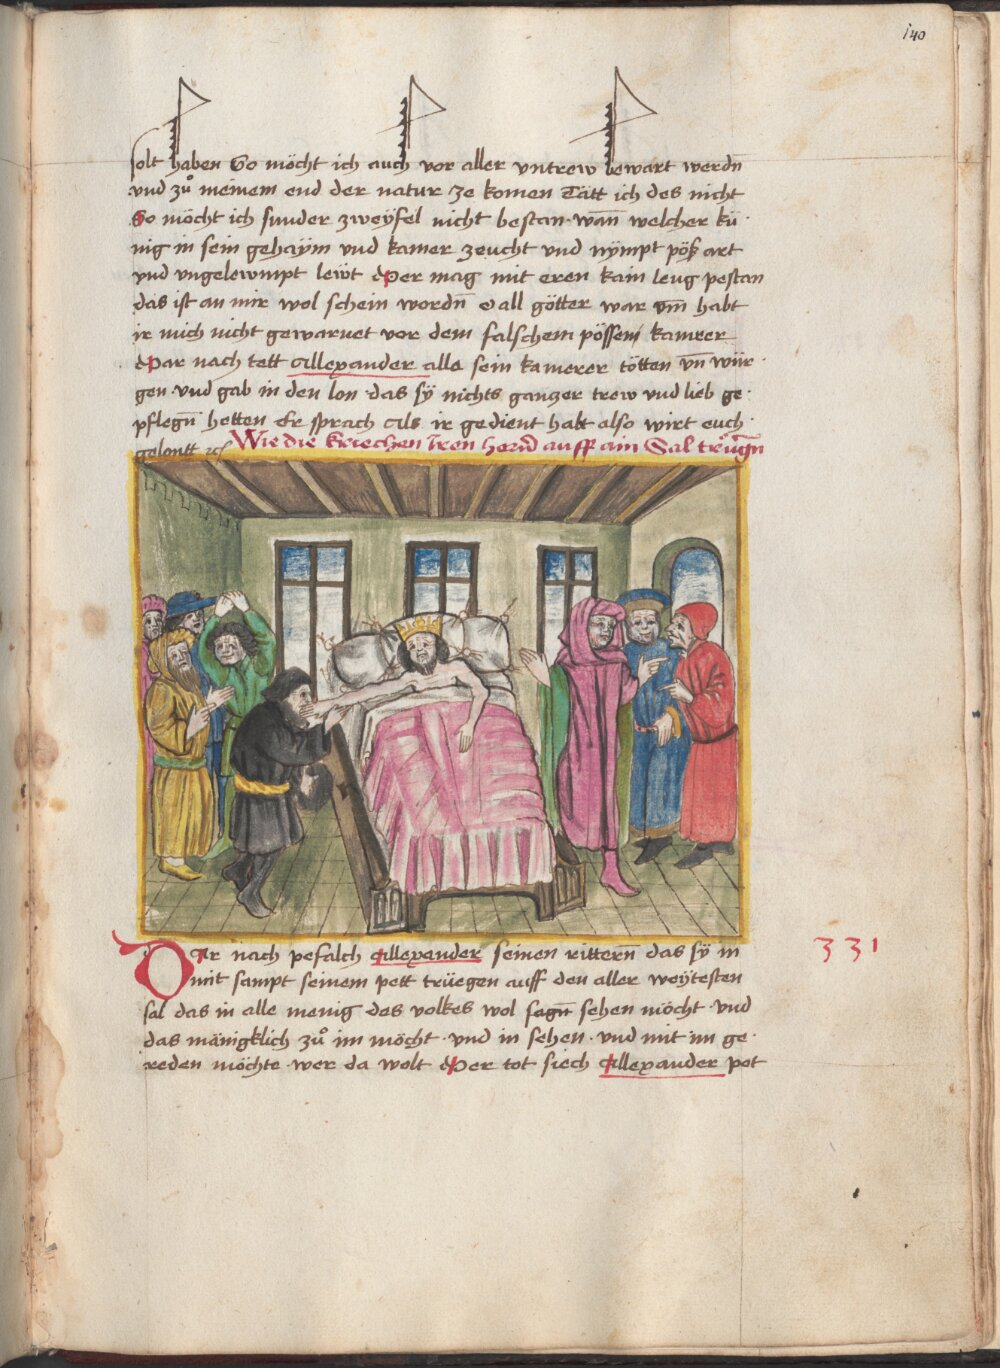 140
solt haben So möcht ich auch vor aller vntrew bewart werdn
vnd zů meinem end der natur ze komen Tätt ich des nicht
So möcht ich sunder zweÿfel nicht bestan · wan̄ welcher kü
nig in sein gehaÿm vnd kamer zeucht vnd nÿmpt pöß art
vnd vngelewmpt lewt Der mag mit eren kain leng pestan
das ist an mir wol schein wordn̄ O all götter war vm̄ habt
ir mich nicht gewarnet vor dem falschem pössem kamrer
Dar nach tett Allexander alle sein kamerer tötten vn̄ wür
gen · vnd gab in den lon · das sÿ nichts ganczer trew vnd lieb ge
pflegn̄ hetten Er sprach Als ir gedient habt also wirt euch
gelontt ⁊c̃
Wie die kriechen Iren hern̄ auff ain Sal trůgn̄
DAr nach pefalch Allexander seinen rittern̄ das sÿ in
mit sampt seinem pett trüegen auff den aller weÿtesten
sal das in alle menig des volkes wol sagn̄ sehen möcht · vnd
das mänigklich zů im möcht · vnd in sehen · vnd mit im ge
reden möchte · wer da wolt Der tot siech Allexander pot
331